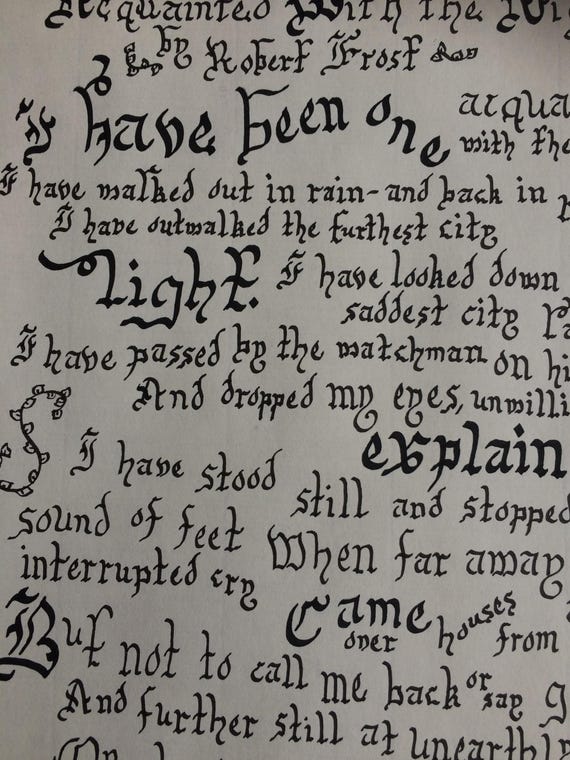 Acquainted With the Nig
by Robert Frost
I have been one acqua
with the
I have walked out in rain-and back in
I have outwalked the furthest city
light. I have looked down
saddest city la
I have passed by the watchman on hi
And dropped my eyes, unwilli
explain
S
I have stood still and stopped
sound of feet When far away
interrupted cry
Came over houses from
But not to call me back or say g
And further still at unearthly